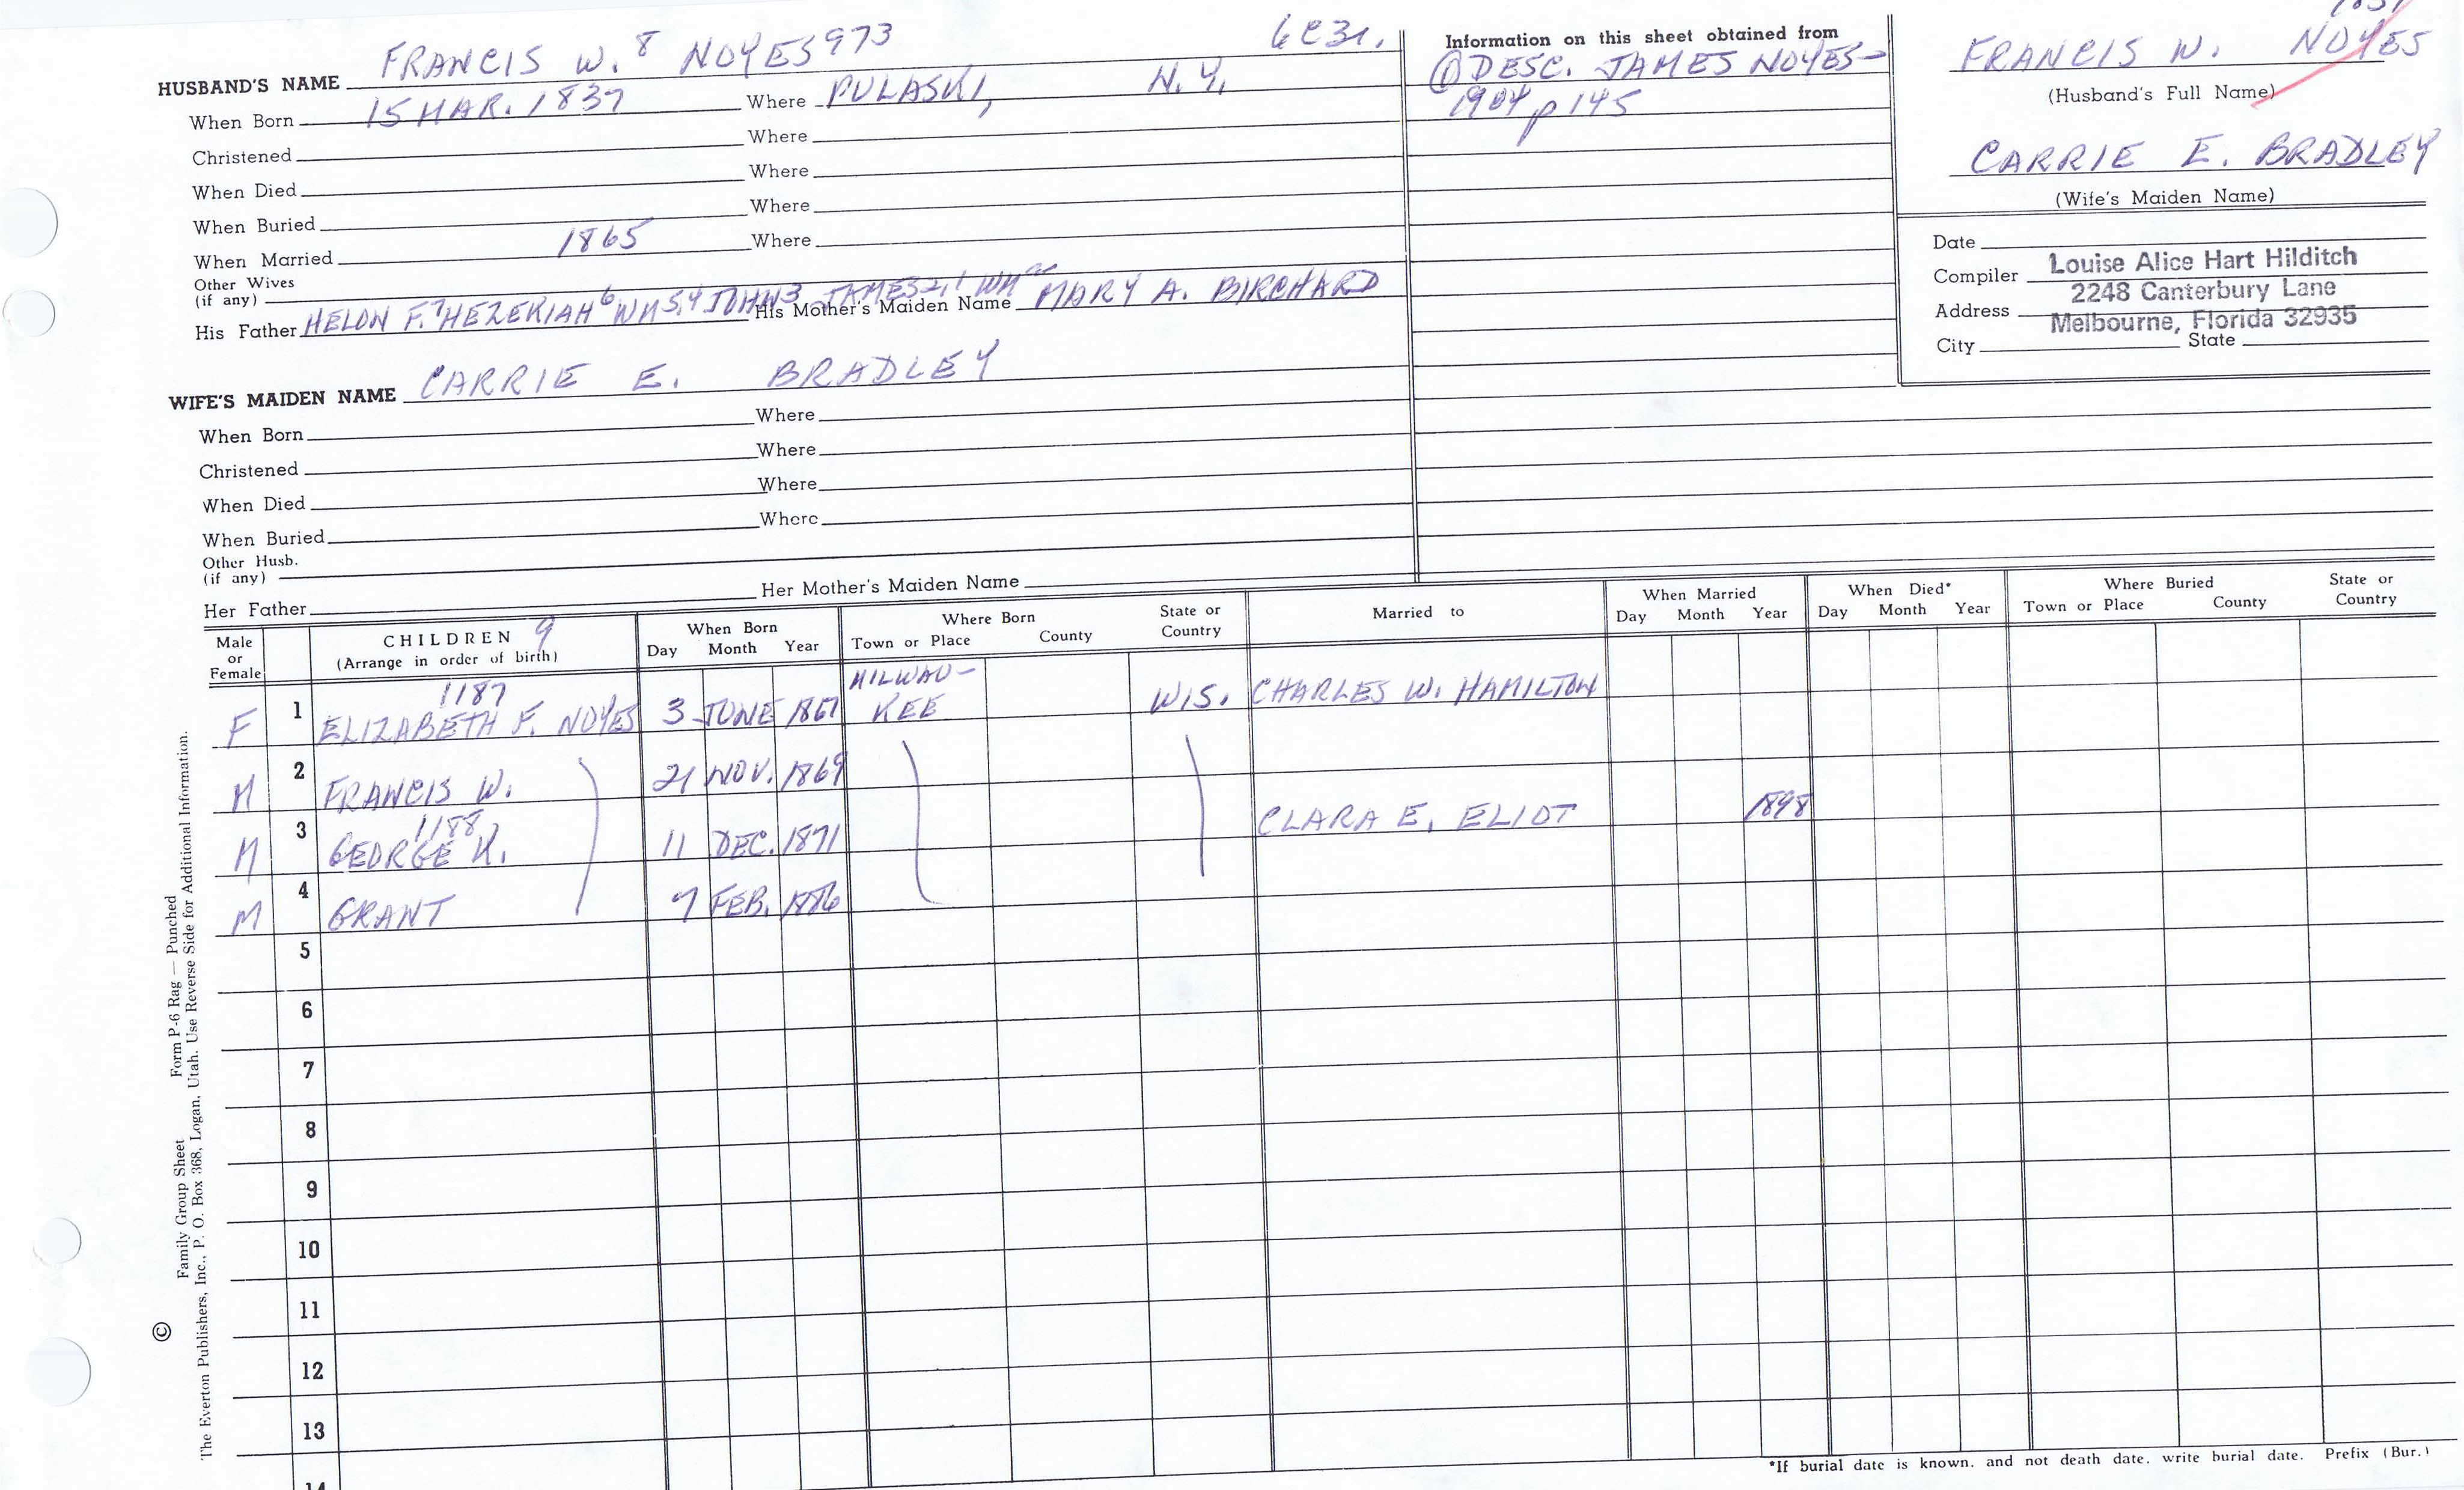 HUSBAND'S NAME FRANCIS W. 8 NOYES 973 6C31.
When Born 15 MAR. 1837 Where PULASKI, N.Y.
Christened Where
When Died Where
When Buried Where
When Married 1865 Where
Other Wives
(if any)
His Father HELON F.7 HEZEKIAH6 WM5,4 JOHN3 JAMES2,1 WM His Mother's Maiden Name MARY A. BIRCHARD
WIFE'S MAIDEN NAME CARRIE E. BRADLEY
When Born Where
Christened Where
When Died Where
When Buried Where
Other Husb.
(if any)
Her Father Her Mother's Maiden Name
Information on this sheet obtained from
① DESC. JAMES NOYES-
1904 p 145
FRANCIS W. NOYES
(Husband's Full Name)
CARRIE E. BRADLEY
(Wife's Maiden Name)
Date
Compiler Louise Alice Hart Hilditch
Address 2248 Canterbury Lane
Melbourne, Florida 32935
City State
Male or Female CHILDREN 9 (Arrange in order of birth) When Born Day Month Year Where Born Town or Place County State or Country Married to When Married Day Month Year When Died* Day Month Year Where Buried Town or Place County State or Country
F 1 1187 ELIZABETH F. NOYES 3 JUNE 1867 MILWAU-KEE WIS. CHARLES W. HAMILTON
M 2 FRANCIS W. 21 NOV. 1869
M 3 1188 GEORGE H. 11 DEC. 1871 CLARA E. ELIOT 1898
M 4 GRANT 7 FEB.
5
6
7
8
9
10
11
12
13
14
*If burial date is known, and not death date, write burial date. Prefix (Bur.)
© Family Group Sheet Form P-6 Rag — Punched
The Everton Publishers, Inc., P. O. Box 368, Logan, Utah. Use Reverse Side for Additional Information.